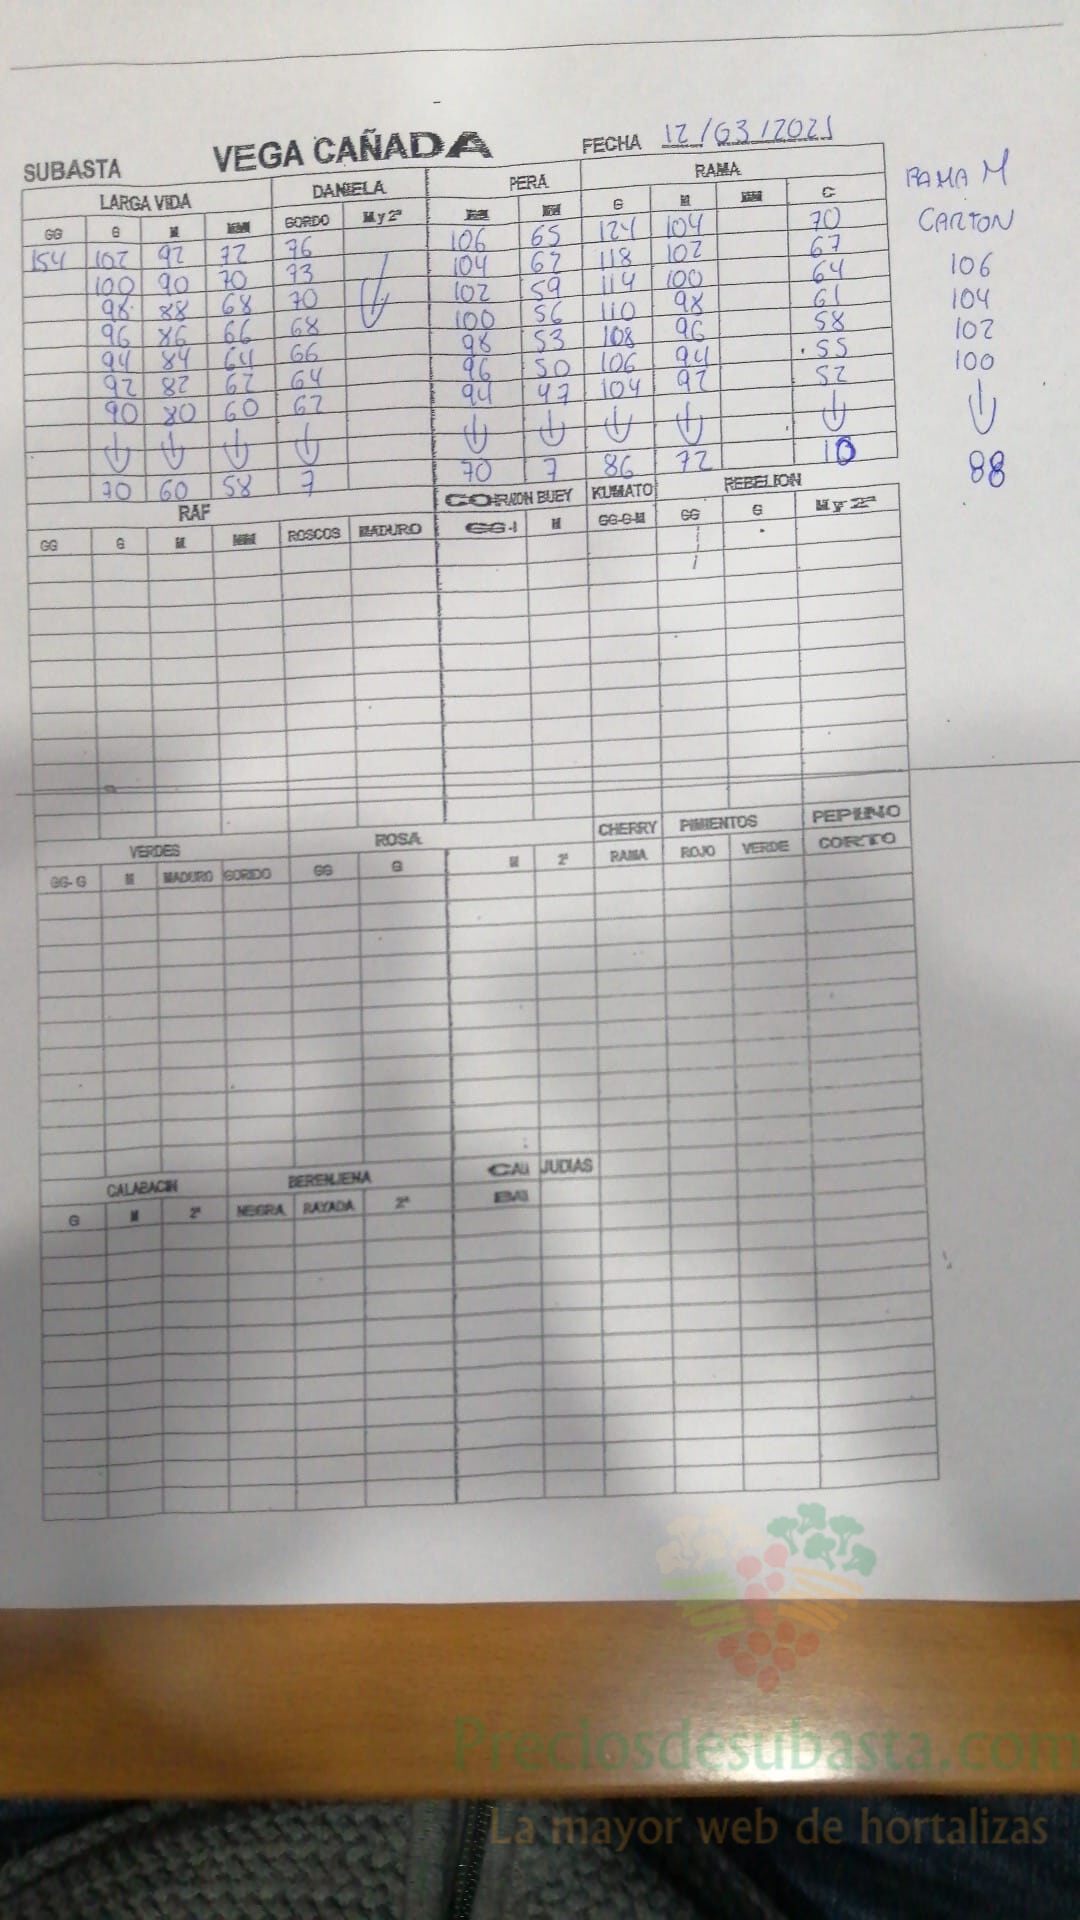 SUBASTA VEGA CAÑADA FECHA 12/03/2021
LARGA VIDA DANIELA PERA RAMA RAMA M
GG G M MM GORDO M y 2ª MM G M MM C CARTON
154 102 92 72 76 106 65 124 104 70
100 90 70 73 104 62 118 102 67 106
98 88 68 70 102 59 114 100 64 104
96 86 66 68 100 56 110 98 61 102
94 84 64 66 98 53 108 96 58 100
92 82 62 64 96 50 106 94 55
90 80 60 62 94 47 104 92 52
70 60 58 7 70 7 86 72 10 88
RAF CORAZON BUEY KUMATO REBELION
GG G M MM ROSCOS MADURO GG- M GG-G-M GG G M y 2ª
VERDES ROSA CHERRY PIMIENTOS PEPINO
GG-G M MADURO GORDO GG G M 2ª RAMA ROJO VERDE CORTO
CALABACIN BERENJENA JUDIAS
G M 2ª NEGRA RAYADA 2ª
Preciosdesubasta.com
La mayor web de hortalizas